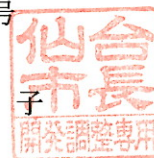 号
仙台
市長
子
開発調整専用